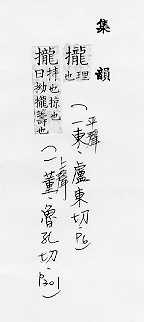 集韻
攏理也(平聲一東、盧東切、P6)
攏也掠也曰拗攏也(上聲一董、魯孔切、P301)